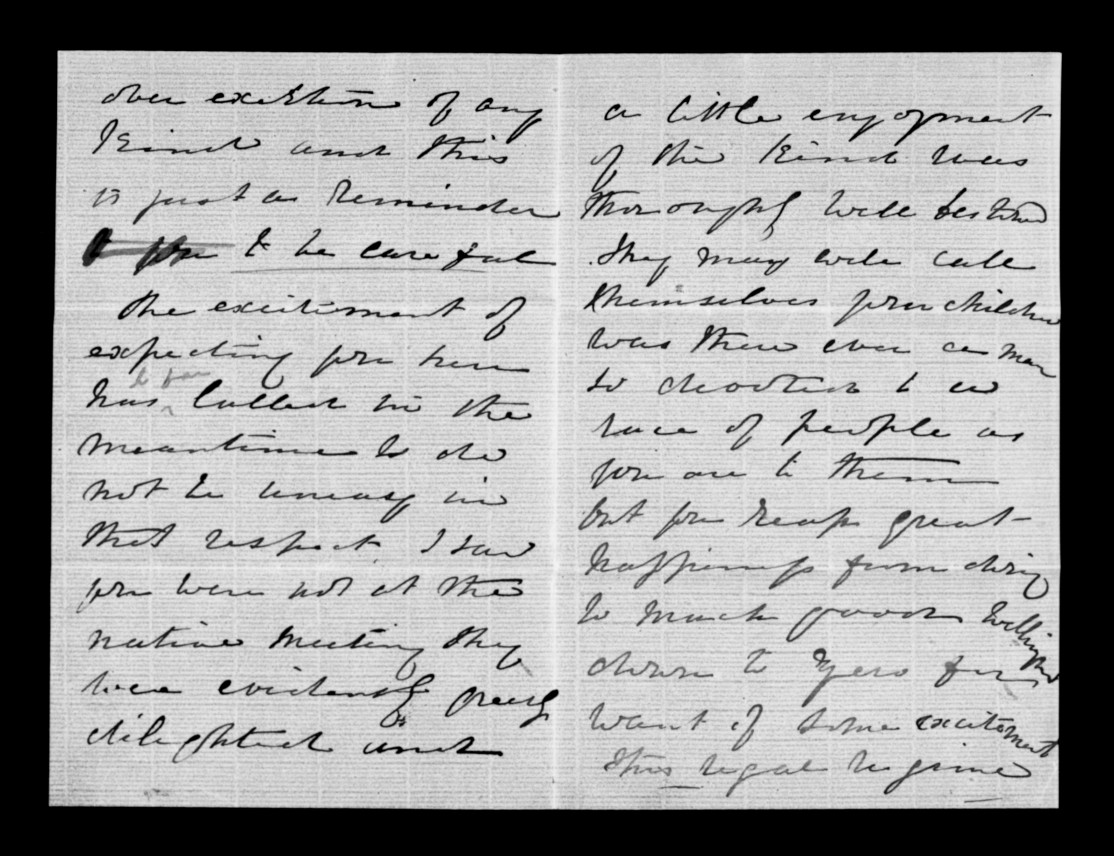 over exertion of any
kind and this
is just a reminder
to you to be careful
The excitement of
expecting you here
has lulled in the
to you
meantime so do
not be uneasy in
that respect. I saw
you were not at the
native meeting they
were evidently greatly
delighted and
a little enjoyment
of the kind was
thoroughly well bestowed
They may well call
themselves your children
was there ever a man
so devoted to a
race of people as
you are to them
but you reap great
happiness from doing
so much good Wellington
down to Zero for
want of some excitement
this legal regime